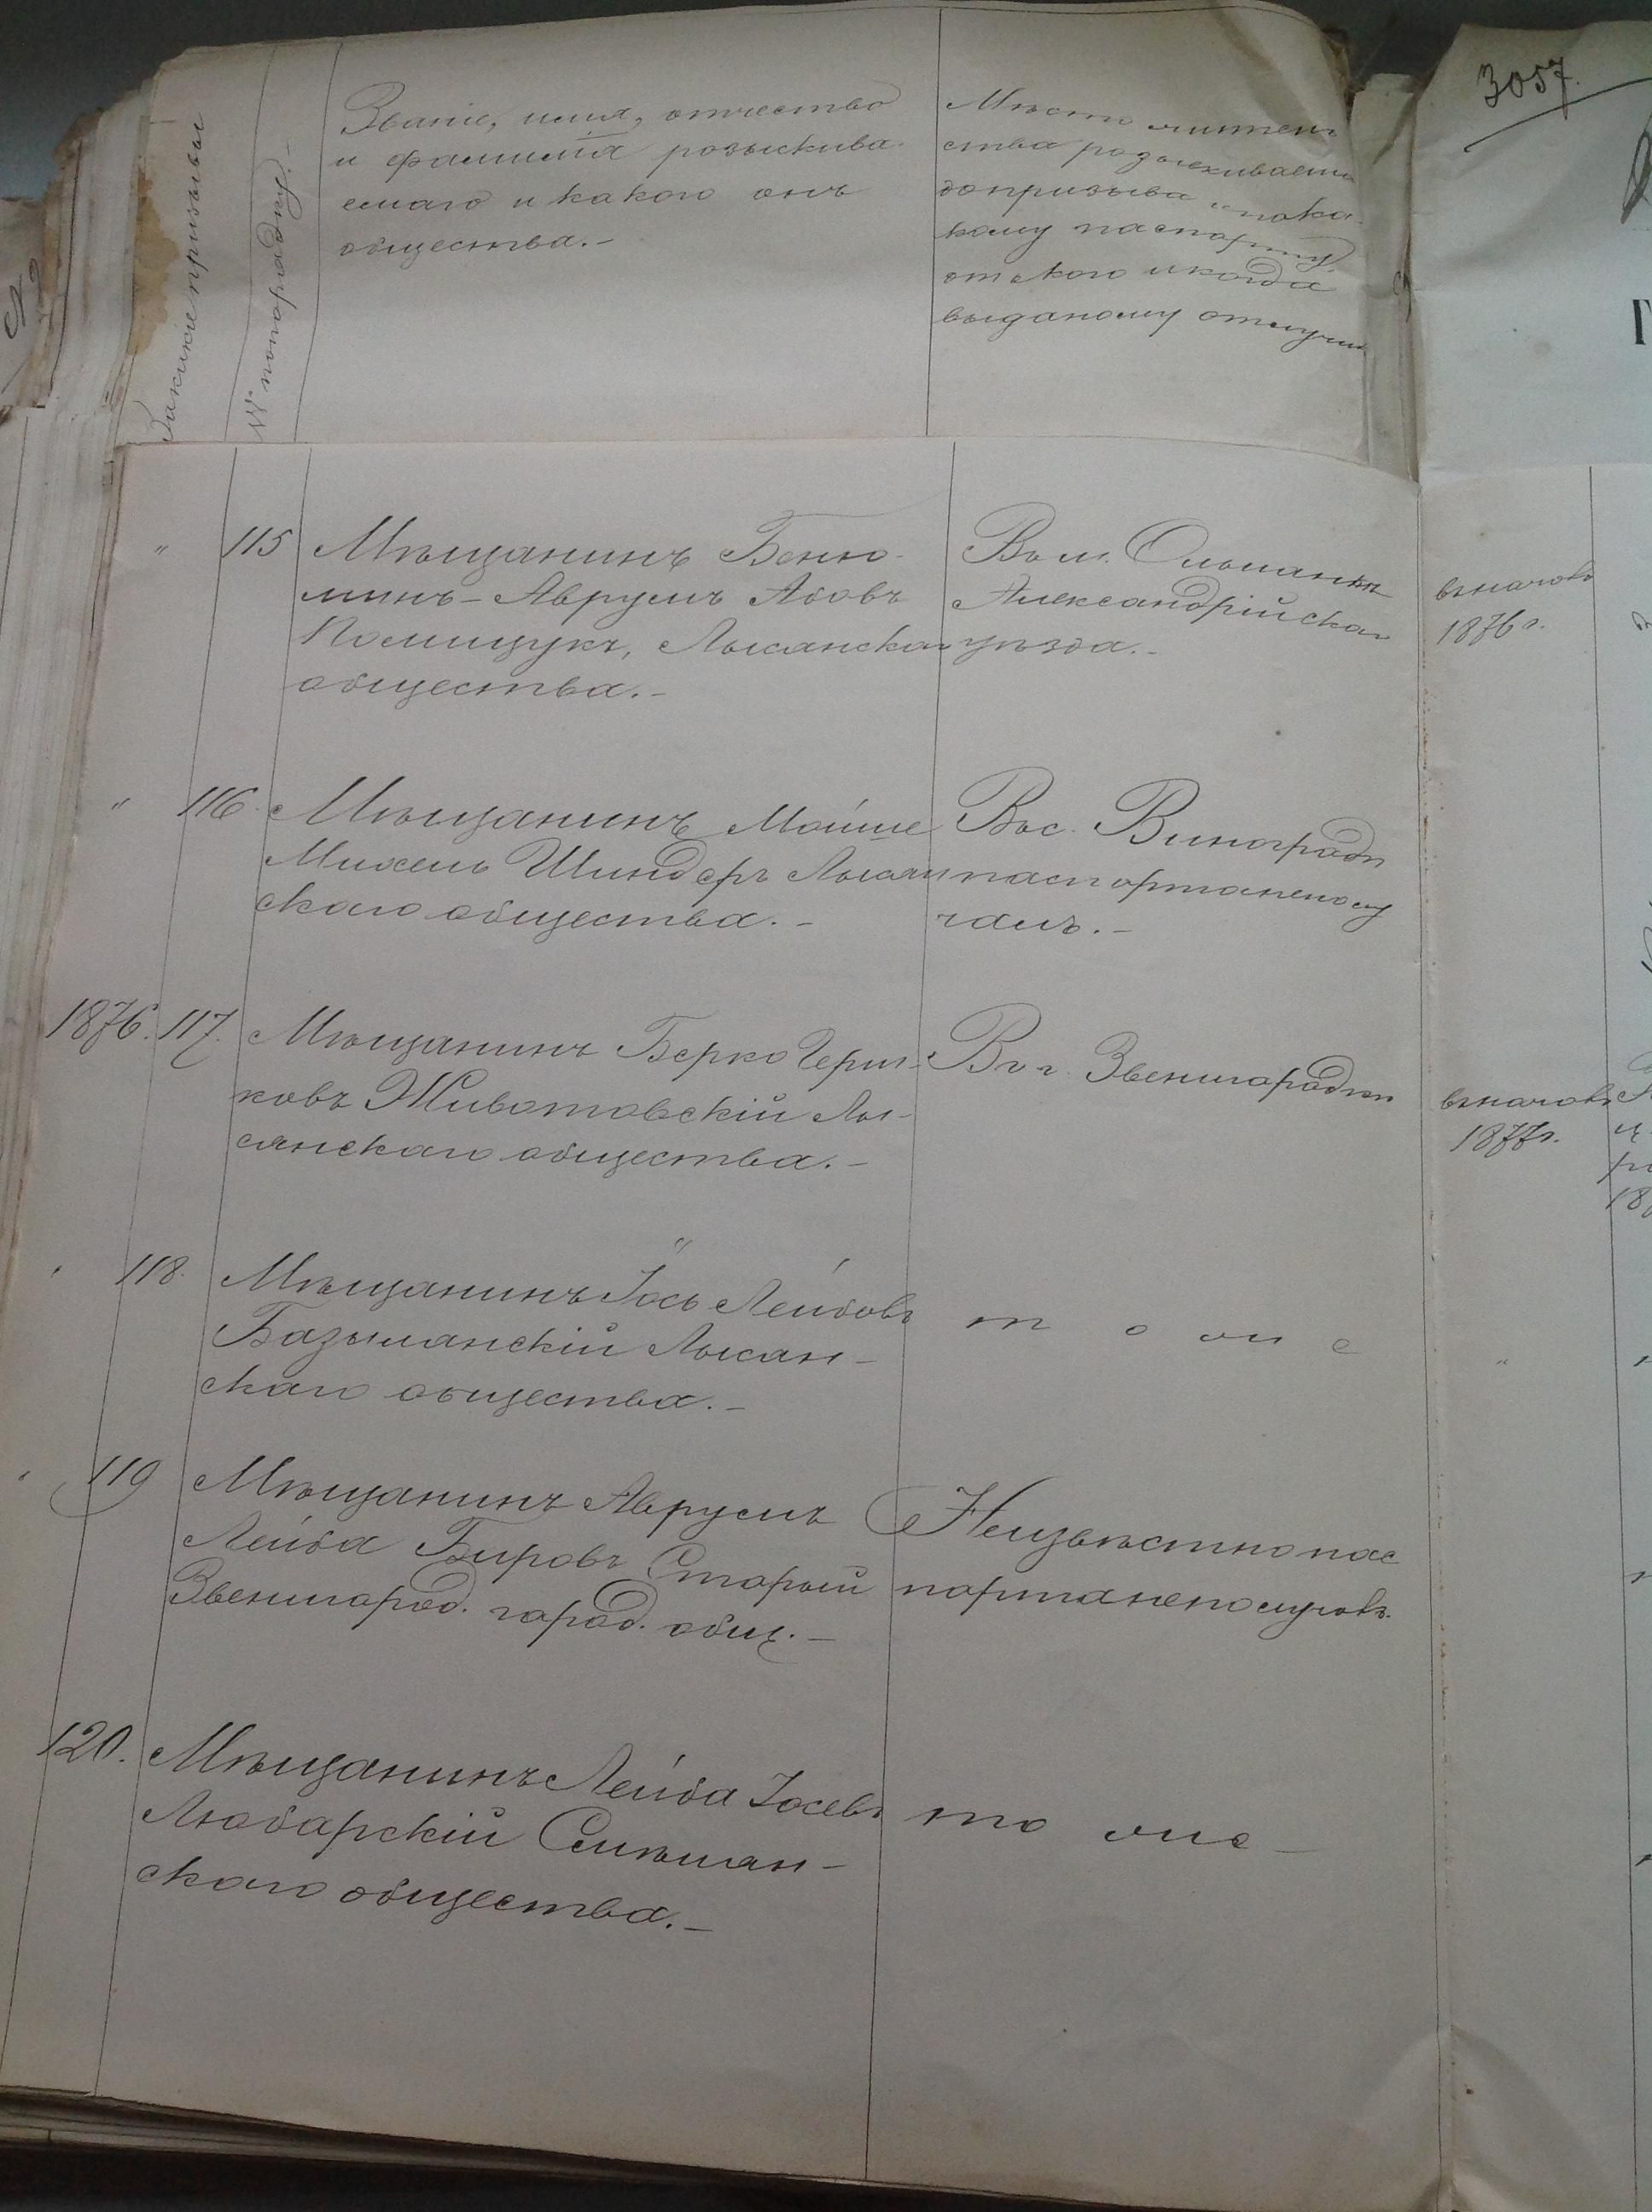 3057.
За какіе призывы
№ по порядку.
Званіе, имя, отчество
и фамилія розыскива-
емаго и какого онъ
общества.-
Мѣсто житель
ства розыскиваемаго
до призыва и по ка-
кому паспорту,
отъ кого и когда
выданому отлучи
" 115 Мѣщанинъ Беню-
минъ-Аврумъ Абовъ
Полищукъ, Лысянскаго
общества.-
Въ м. Ольшанкѣ
Александрійскаго
уѣзда.-
въ началѣ
1876 г.
" 116. Мѣщанинъ Мойше
Михель Шиндеръ Лысян
скаго общества.-
Въ с. Виноградѣ
паспорта неполу
чалъ.-
1876. 117. Мѣщанинъ Берко Герш-
ковъ Животовскій Лы-
сянскаго общества.-
Въ г. Звенигородкѣ
въ началѣ
1877 г.
" 118. Мѣщанинъ Іось Лейбовъ
Базилианскій Лысян-
скаго общества.-
т о ж е
"
" 119 Мѣщанинъ Аврумъ
Лейба Бировъ Старый
Звенигород. город. общ.-
Неизвѣстно пас
порта неполучалъ.
120. Мѣщанинъ Лейба Іосевъ
Любарскій Смѣлян-
скаго общества.-
то же -